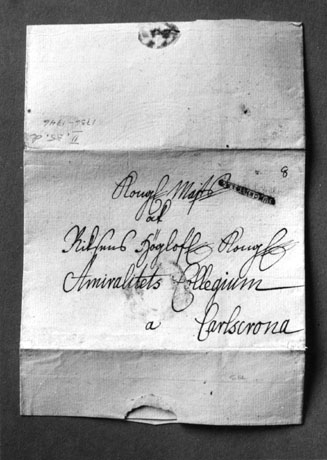 8
Kongl Majts
Riksens Höglofl Kongl
Amiralitets Collegium
a Carlscrona